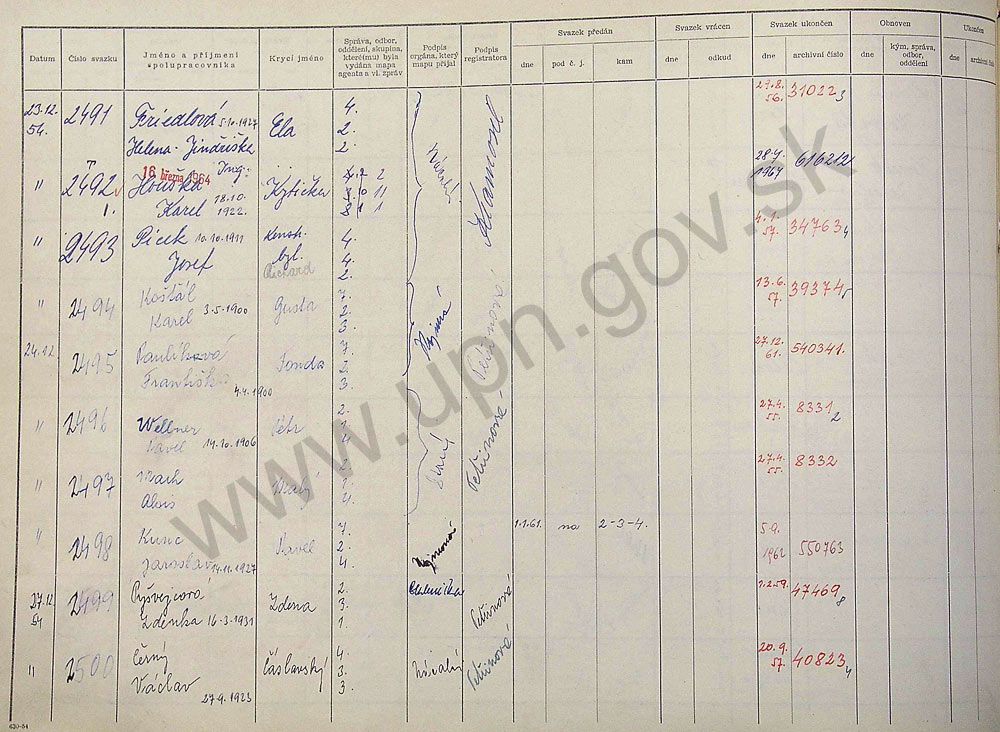 Datum
Číslo svazku
Jméno a příjmení spolupracovníka
Krycí jméno
Správa, odbor, oddělení, skupina, kterému(mu) byla vydána mapa agenta a vl. zpráv
Podpis orgána, který mapu přijal
Podpis registrátora
Svazek předán
dne
pod č. j.
kam
Svazek vrácen
dne
odkud
Svazek ukončen
dne
archivní číslo
Obnoven
dne
kým, správa, odbor, oddělení
Ukončen
dne
23.12. 54. 2491 Friedlová 5.10.1927 Ela 4. 29.8. 56. 310223
Helena-Jindřiška 2.
2.
16 března 1964
" 2492 Houška Ing. Kytička 2 28. 1964 616212
1. Karel 18.10. 1922. 11
1 1
" 2493 Picek 10.10.1911 konsp. byt. 4. 4.1. 57. 34763 4
Josef Richard 4.
2.
" 2494 Košťál Gusta 7. 13.6. 57. 39374
Karel 3.5.1900 2.
3.
24.12. 2495 Pavlíková Fonda 7. 27.12. 61. 540341.
Františka 4.4.1900 2.
3.
" 2496 Wellner Petr 2. 27.4. 55. 8331 2
Pavel 14.10.1906 1.
4
" 2497 Mach Malý 2. 27.4. 55. 8332
Alois 1
4.
" 2498 Kunc Pavel 7. 1.1.61. na 2-3-4. 5.9. 1962 550763
Jaroslav 14.11.1927 2.
4.
27.12. 54 2499 Zdena 2. 1.2.59. 47469 8
Zdenka 16.3.1931 3.
1.
" 2500 Černý Čáslavský 4. 20.9. 57. 40823 4
Václav 3.
27.9.1923 3.
www.upn.gov.sk